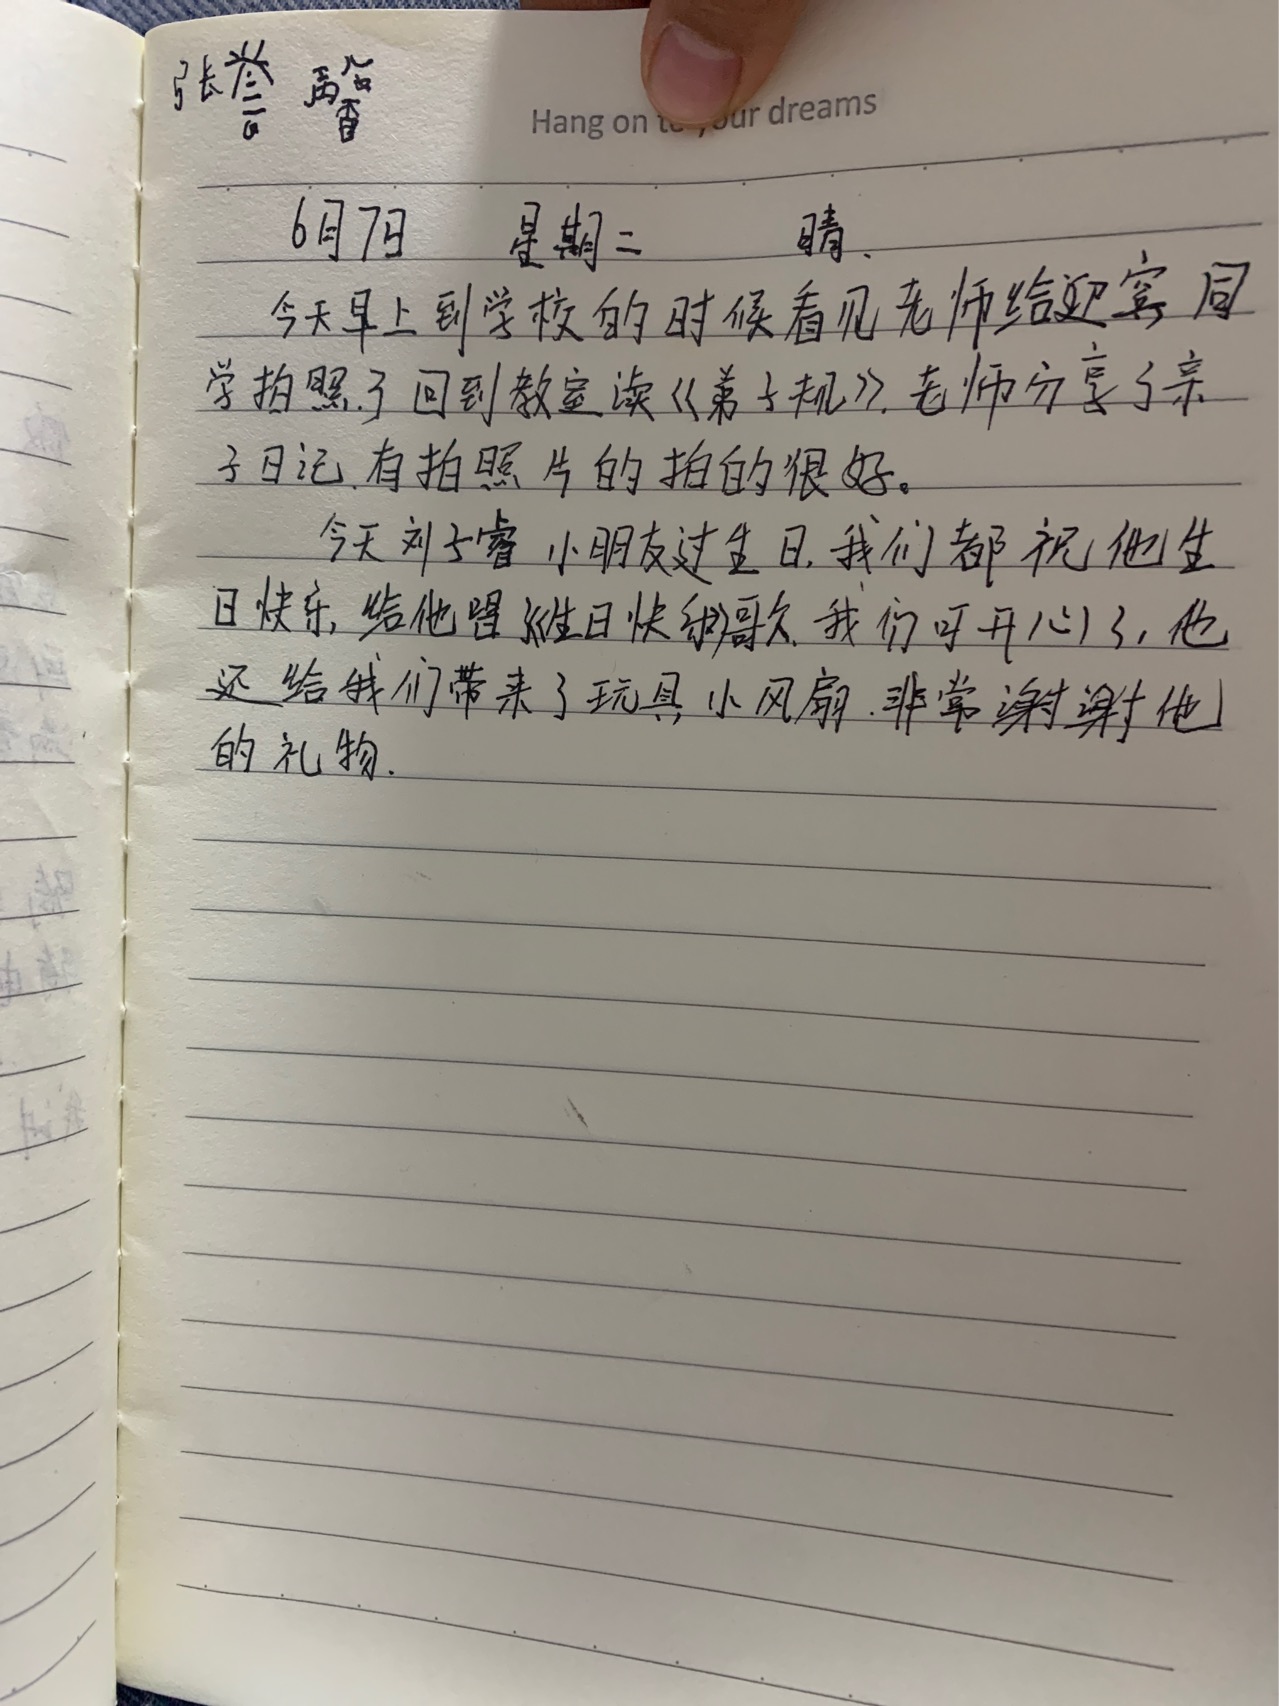 张誉馨
Hang on to your dreams
6月7日 星期二 晴.
今天早上到学校的时候看见老师给迎宾同
学拍照了回到教室读《弟子规》.老师分享了亲
子日记.有拍照片的拍的很好。
今天刘子睿小朋友过生日.我们都祝他生
日快乐,给他唱《生日快乐》歌.我们可开心了,他
还给我们带来了玩具小风扇.非常谢谢他
的礼物.